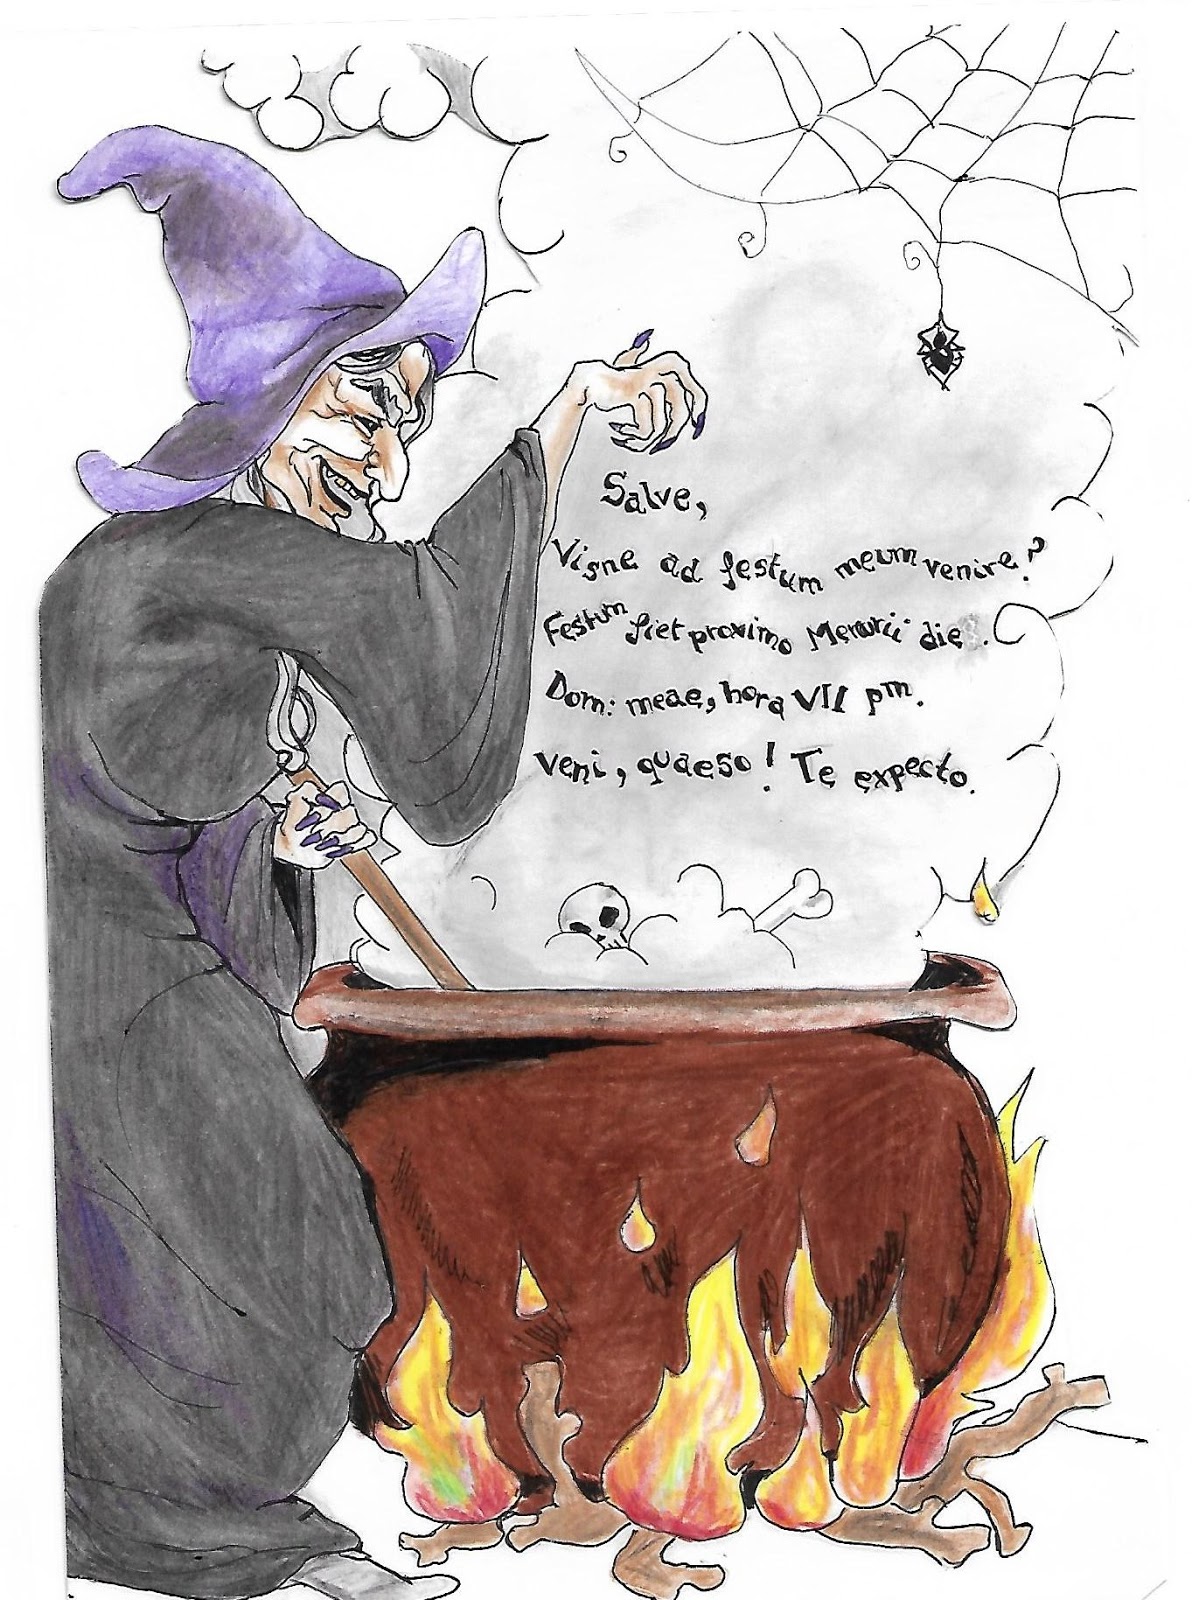 Salve,
Visne ad festum meum venire?
Festum fiet proximo Mercurii die.
Dom: meae, hora VII pm.
veni, quaeso! Te expecto.